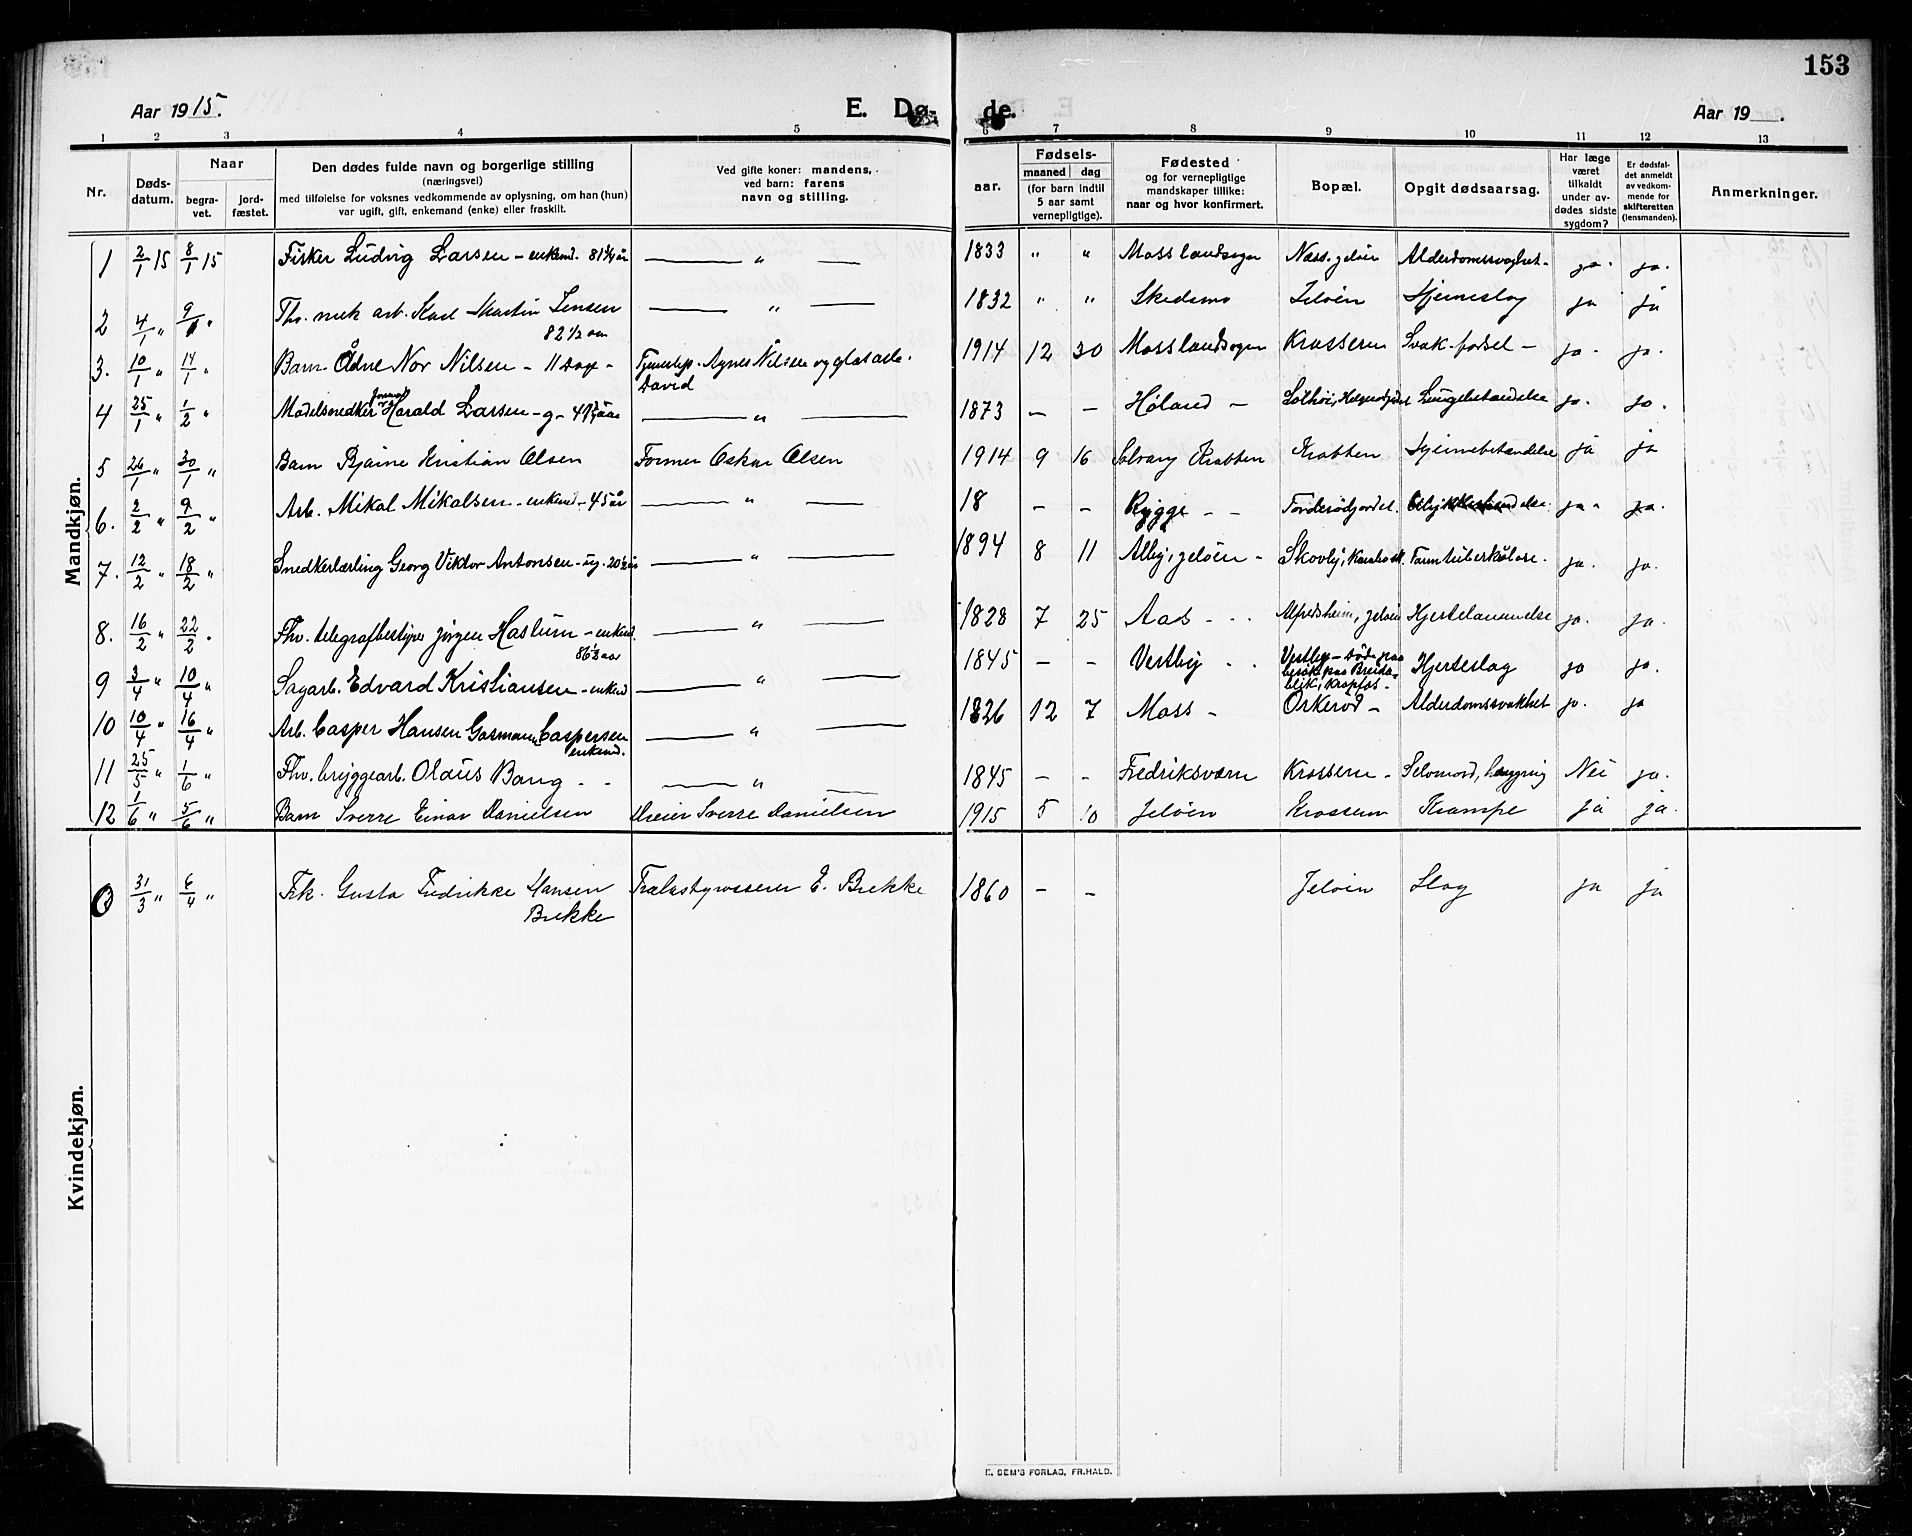 153
Aar 1915.
E. Dø- de.
Aar 19 .
1 2 3 4 5 6 7 8 9 10 11 12 13
Nr.
Døds-
datum.
Naar
begra-
vet.
jord-
fæstet.
Den dødes fulde navn og borgerlige stilling
(næringsvei)
med tilføielse for voksnes vedkommende av oplysning, om han (hun)
var ugift, gift, enkemand (enke) eller fraskilt.
Ved gifte koner: mandens,
ved barn: farens
navn og stilling.
aar.
Fødsels-
maaned dag
(for barn indtil
5 aar samt
vernepligtige).
Fødested
og for vernepligtige
mandskaper tillike:
naar og hvor konfirmert.
Bopæl.
Opgit dødsaarsag.
Har læge
været
tilkaldt
under av-
dødes sidste
sygdom?
Er dødsfal-
det anmeldt
av vedkom-
mende for
skifteretten
(lensmanden).
Anmerkninger.
Mandkjøn.
1 2/1 15 8/1 15 Fisker Ludvig Larsen - enkemd. 81 1/4 år — " — 1833 " " Moss landsogn Næss. jeløen Alderdomssvaghet - ja. ja.
2 4/1 " 9/1 " Fhv. mek arb. Karl Martin Jensen — " — 1832 " " Skedsmo Jeløen Hjerneslag ja ja
82 1/2 aar
3. 10/1 " 14/1 " Barn Ådne Nor Nilsen - 11 Dage - Tjenestep. Agnes Nilsen og glasarb. 1914 12 30 Moss landsogn Krosseren Svak fødsel - ja. ja.
David
4 25/1 " 1/2 " Modelsnedker Harald Larsen - g - aar — " — 1873 - - Høland - Solhøi, Lungebetændelse ja. ja.
5 26/1 " 30/1 " Barn Bjarne Kristian Olsen Former Oskar Olsen 1914 9 16 Solvang Krabben Krabben Hjernebetændelse ja ja
6. 2/2 " 9/2 " Arb. Mikal Mikalsen - enkemd - 45 år — " — 18 - - Rygge - - ja. ja.
7. 12/2 " 18/2 " Snedkerlærling Georg Viktor Antonsen - ug. 20 1/2 år — " — 1894 8 11 Alby, jeløen - Skovly, Kambo st. Tarmtuberkulose. ja. ja.
8. 16/2 " 22/2 " Fhv. telegrafbestyrer Jørgen Haslum - enkemd. — " — 1828 7 25 Aas - - - Alfredsheim, jeløen Hjertelammelse ja. ja.
86 1/2 aar
9 3/4 " 10/4 " Sagarb. Edvard Kristiansen - enkemd — " — 1845 - - Vestby - - Vestby - døde paa Hjerteslag ja ja.
besøk paa Breida-
blik, Krapfos -
10 10/4 " 16/4 " Arb. Casper Hansen Gasmann Caspersen — " — 1826 12 7 Moss - Orkerød - Alderdomssvakhet ja. ja
enkemd.
11 25/5 " 1/6 " Fhv. bryggearb. Olaus Bang - - — " — 1845 - - Fredriksværn Krosseren - Selvmord, hengning Nei ja.
12 1/6 " 5/6 " Barn Sverre Einar Danielsen Dreier Sverre Danielsen 1915 5 10 Jeløen Krosseren Krampe ja ja.
Kvindekjøn.
31/3 " 6/4 " Frk. Gusta Fredrikke Hansen E. Brekke 1860 - - Jeløen Slag ja ja
Brekke
E. SEM'S FORLAG, FR.HALD.